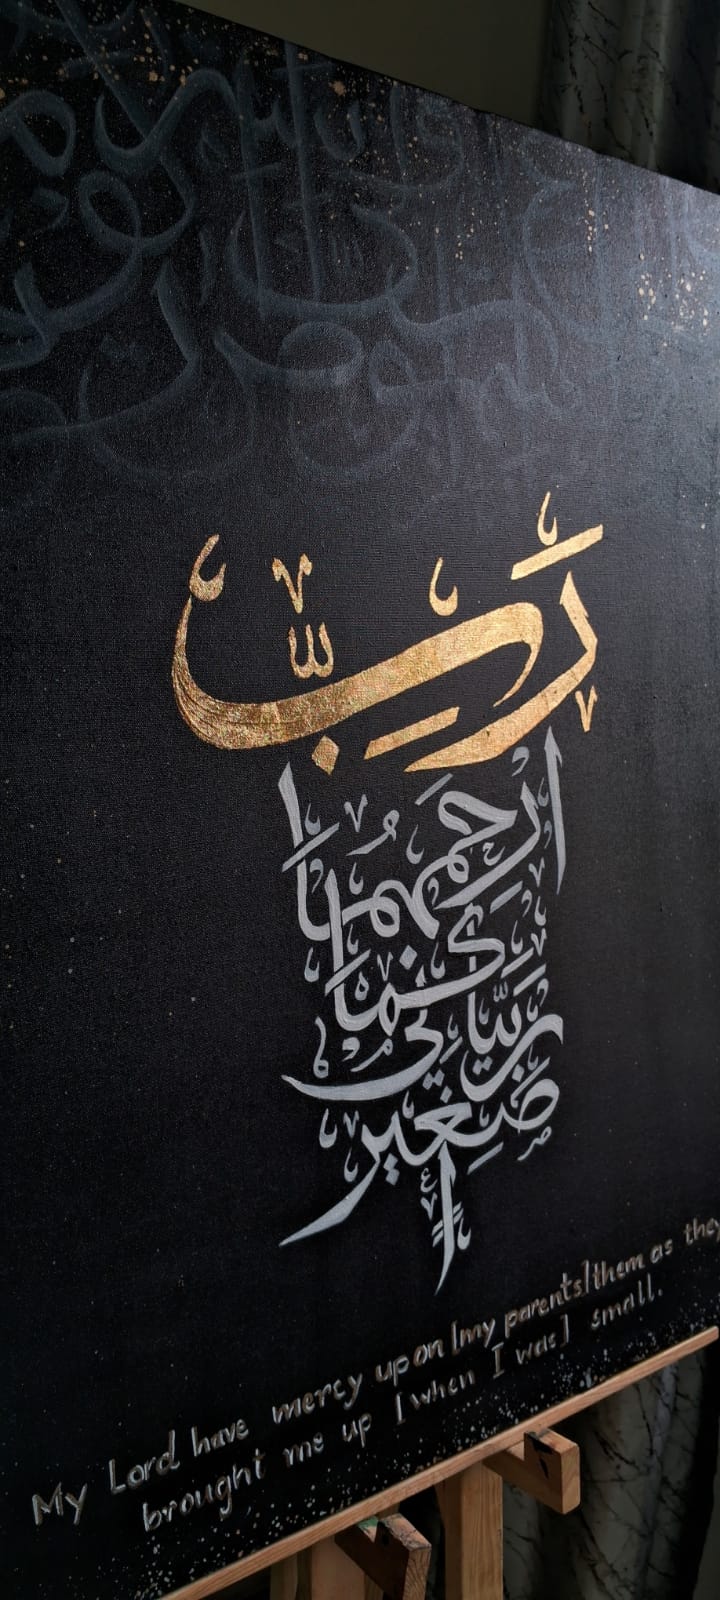 رَبِّ
ارْحَمْهُمَا
كَمَا
رَبَّيَانِي
صَغِيرًا
My Lord have mercy upon [my parents] them as they
brought me up [when I was] small.